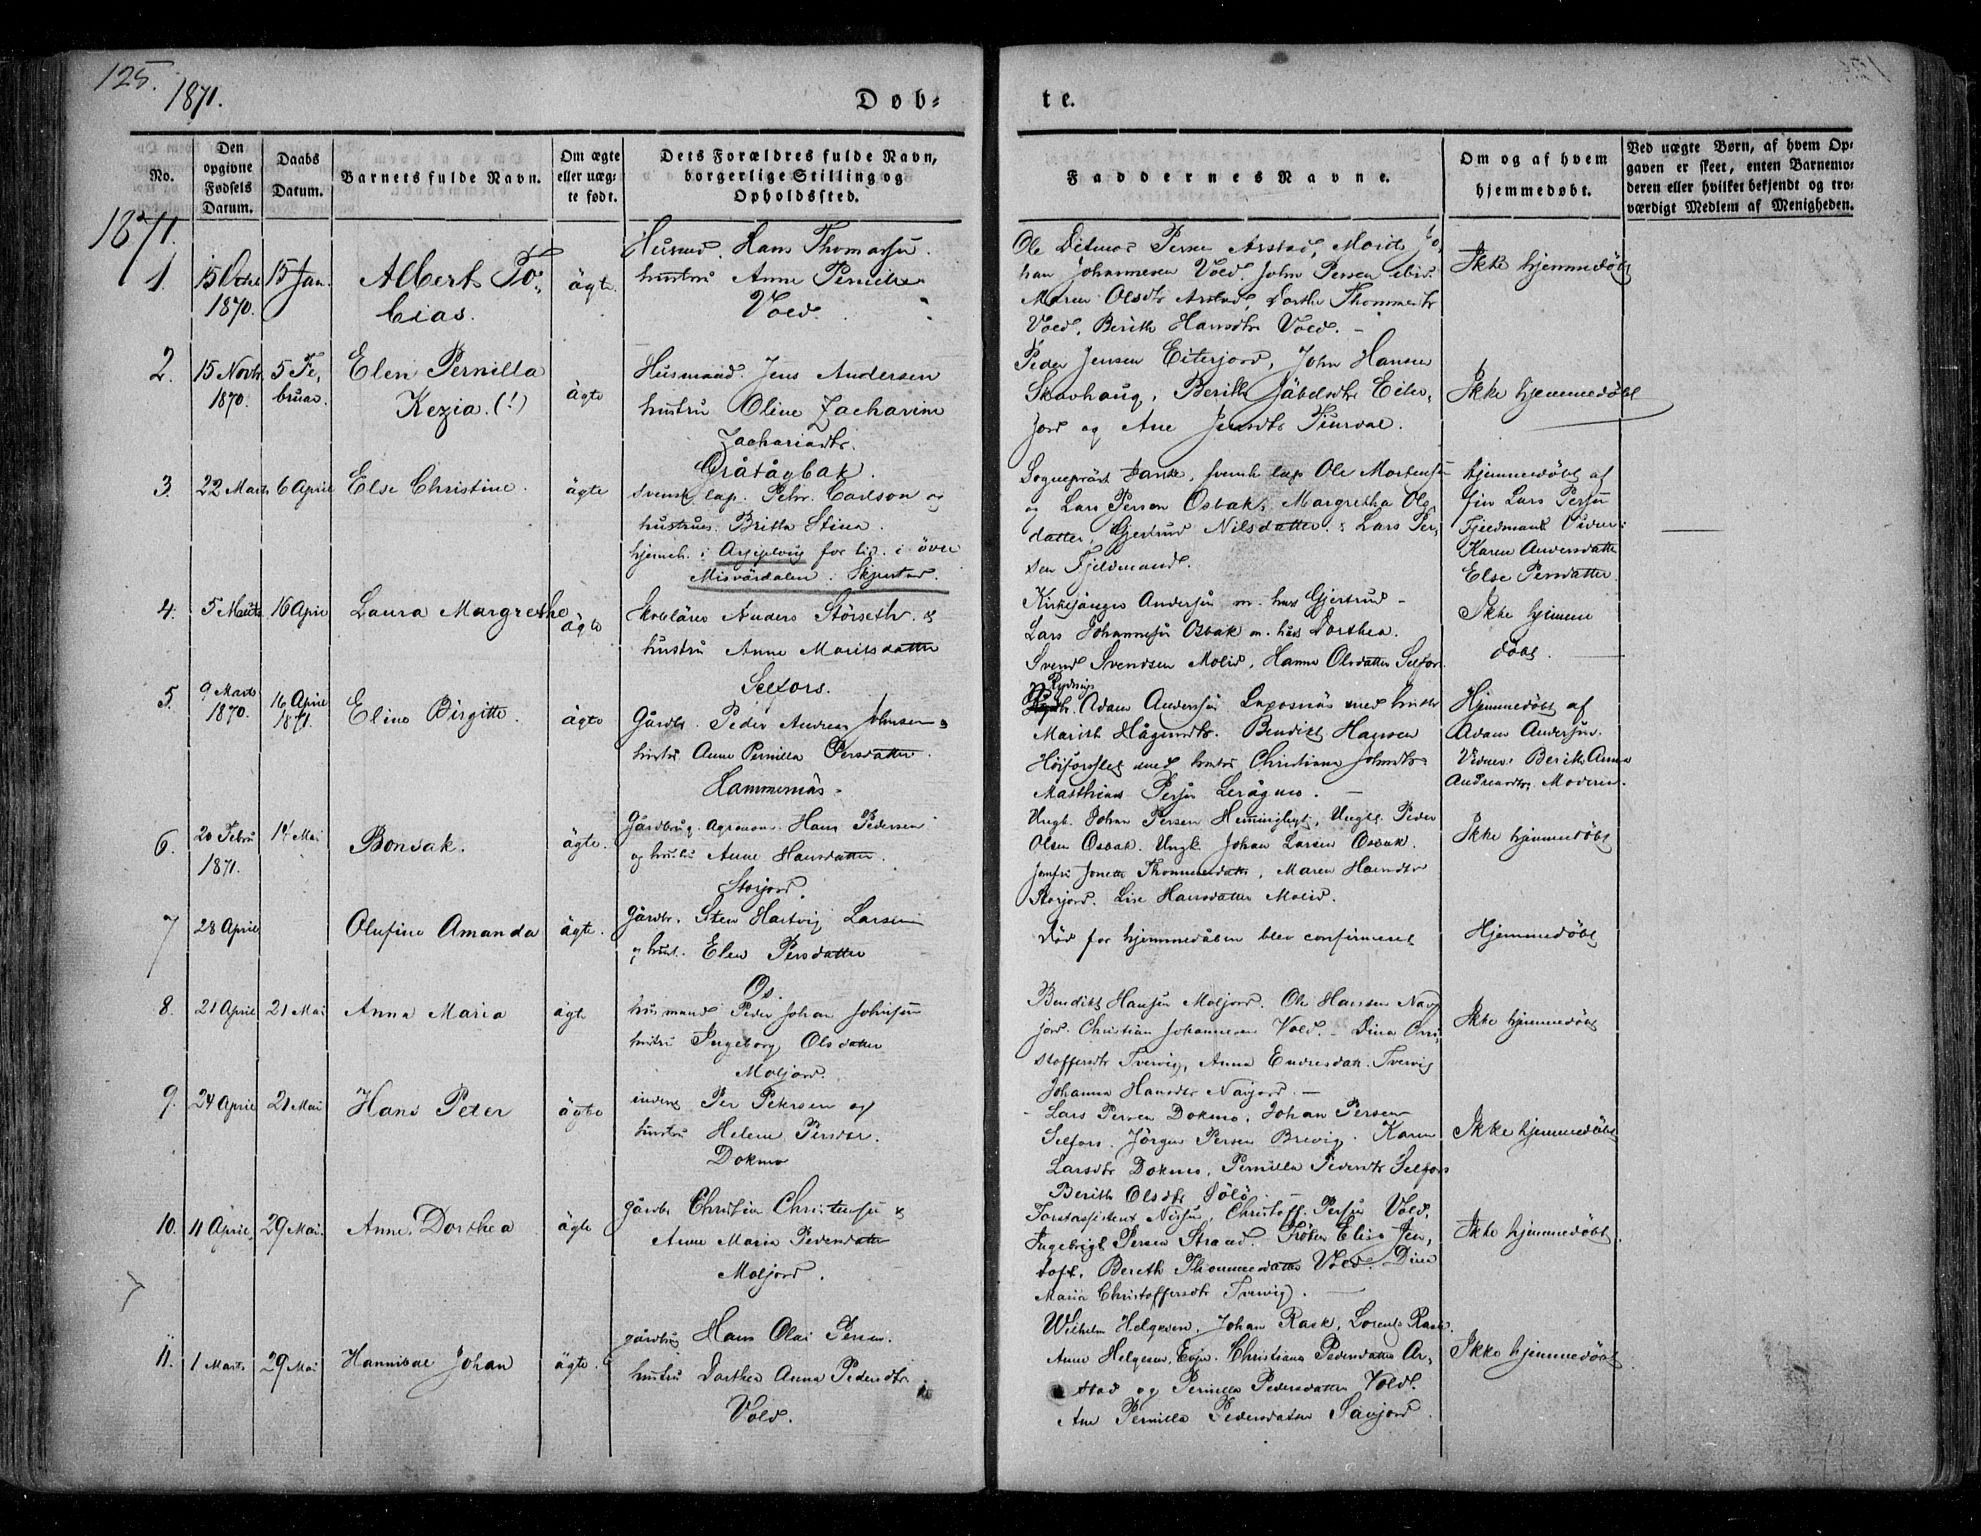 125.
1871.
Døb-
te.
No.
Den opgivne Fødsels Datum.
Daabs Datum.
Barnets fulde Navn.
Om ægte eller uægte født.
Dets Forældres fulde Navn, borgerlige Stilling og Opholdssted.
Faddernes Navne.
Om og af hvem hjemmedøbt.
Ved uægte Børn, af hvem Opgaven er skeet, enten Barnemoderen eller hvilket bekjendt og troværdigt Medlem af Menigheden.
1871.
1. 15 Octbr 1870. 15 Jan. Albert To-
bias.
ägte
Husmd. Hans Thomassen.
hustru Anne Pernille
Vold.
Ole Ditmar Persen Arstad, Morits Jo-
han Johannesen Vold. John Persen ibid.
Maren Olsdtr Arstad, Dorthe Thommesdtr
Vold, Berith Hansdtr Vold.
Ikke hjemmedøbt
2. 15 Novbr 1870. 5 Fe-
bruar.
Elen Pernilla
Kezia. (!)
ägte
Husmand. Jens Andersen
hustru Oline Zacharine
Zachariadtr.
Gråtågbak.
Peder Jensen Eiterjord, John Hansen
Skavhaug, Berith Jäbelsdtr Eiter-
jord og Ane Jensdtr
Ikke hjemmedøbt
3. 22 Marts 6 April Else Christine.
ägte
Svensk lap. Pehr Carlson og
hustru. Britta Stina.
hjemeh. i Arjeploug for tid. i övre
Misvärdalen. Skjerstad.
Sogneprest Jarck, svensk lap Ole Mortensen
og Lars Person Osbak, Margretha Ols
datter, Gjertrud Nilsdatter. Lars Per-
sen Fjeldmand.
hjemmedöbt af
fin Lars Persen
Fjeldmand Vidner:
Karen Andersdatter
Else Persdatter
4. 5 Marts 16 April Laura Margrethe
ägte
Skolelärer Anders Störseth &
hustru Anne Moritsdatter
Selfors.
Kirkesanger Andersen m. hus Gjertrud
Lars Johannesen Osbak m. hus Dorthea.
Svend Svendsen Molid, Hanna Olsdatter Selfors
Ikke hjemme
döbt.
5. 9 Marts 1870. 16 April 1871. Eline Birgitte.
ägte
Gårdbr. Peder Andreas Johnsen
hustru Anne Pernilla Persdatter.
Hammernäs.
Rydnings
Adam Andersen Laxosnäs med hustru
Marith Hågensdtr. Bendikt Hansen
Höiforsslet med hustru Christiana Johnsdtr
Matthias Persen Lerågmo.
Hjemmedöbt af
Adam Andersen.
Vidner: Berith Anna
Andreasdtr, Moderen.
6. 20 Febru 1871. 14 Mai Bonsak.
ägte.
Gårdbrug. Agronom. Hans Pedersen
og hustru Anne Hansdatter.
Storjord.
Ungk. Johan Persen Hemminghyt, Ungk. Peder
Olsen Osbak. Ungk. Johan Larsen Osbak.
Jomfru Jonetta Thommesdatter, Maren Hansdtr
Storjord. Lise Hansdatter Molid.
Ikke hjemmedöbt
7 28 April Olufine Amanda
ägte.
Gårdbr. Sten Hartvig Larsen
og hust. Elen Persdatter
Os.
död for hjemmedåben blev confirmeret
Hjemmedöbt
8. 21 April 21 Mai Anna Maria
ägte
husmand Peder Johan Johnsen
hustru Ingeborg Olsdatter
Moljord.
Bendikt Hansen Moljord. Ole Hansen Nav
jord. Christian Johannesen Vold. Dina Chri-
stoffersdtr Tvervig, Anna Endresdatr. Tvervig
Johanna Hansdtr Navjord.
Ikke hjemmedöbt
9. 24 April 21 Mai Hans Peter
ägte
inders Per Petersen og
hustru Helene Persdtr.
Dokmo
Lars Persen Dokmo. Johan Persen
Selfors. Jörgen Persen Brevig. Karen
Larsdtr Dokmo, Pernilla Pedersdtr Selfors
Berith Olsdtr Sölö.
Ikke hjemmedöbt
10. 11 April 29 Mai. Anne Dorthea
ägte
gårdbr Christian Christensen &
Anne Maria Pedersdatter
Moljord.
Forstassistent Nissen, Christoff. Persen Vold.
Ingebrigt Persen Strand. Fröken Elise Jen-
toft, Bereth Thommesdatter Vold. Dine
Maria Christoffersdtr Tvervig.
Ikke hjemmedöbt.
11. 1 Marts 29 Mai Hannibal Johan
ägte.
gårdbrug Hans Olai Persen.
hustru Dorthea Anna Pedersdtr
Vold.
Wilhelm Helgesen, Johan Rask, Lorents Rask.
Anne Helgesen, Evje. Christiana Pedersdatter Ar-
stad og Pernilla Pedersdatter Vold.
Ane Pernilla Pedersdatter Savjord.
Ikke hjemmedöbt